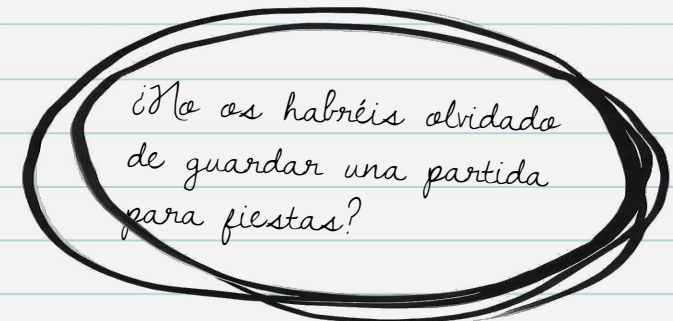 ¿No os habréis olvidado
de guardar una partida
para fiestas?